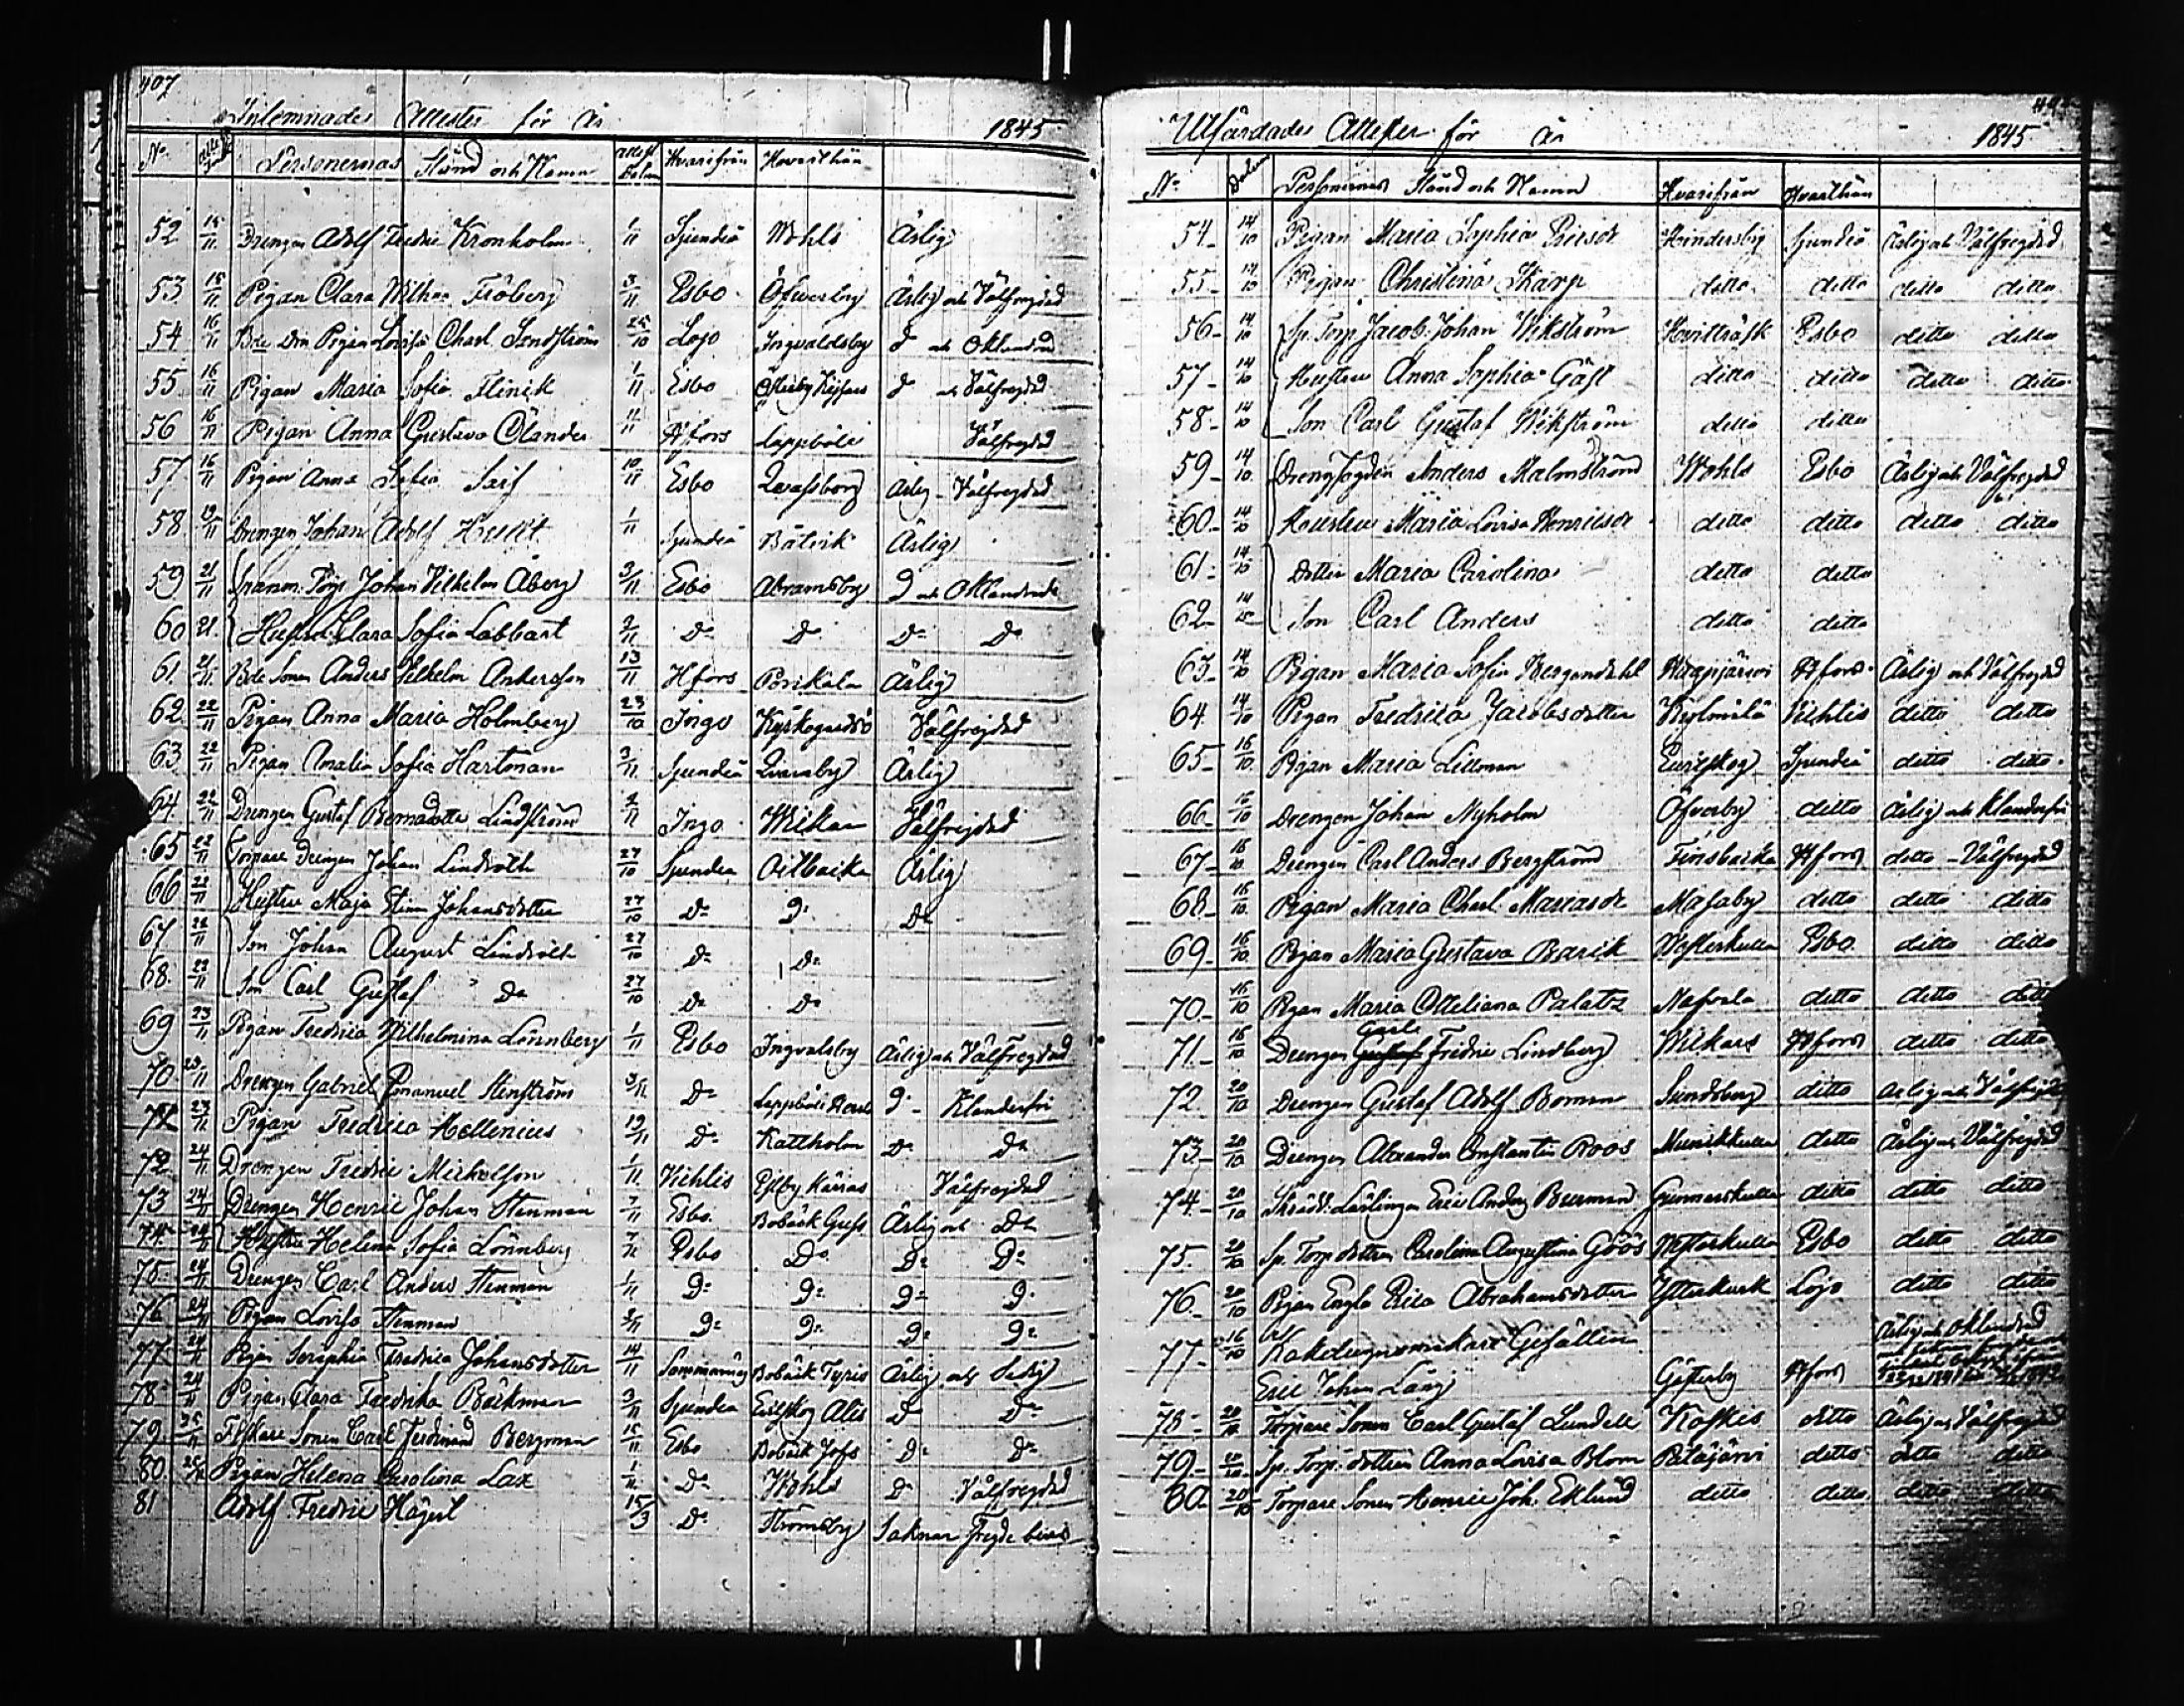 407
Inlemnades Attester för År 1845
No Personernas Stånd och Namn Attest Datum Hvarifrån Hvarthän
52 15/11 Drengen Adolf Fredric Kronholm 1/11 Sjundeå Wohls Ärlig
53 15/11 Pigan Clara Wilhna Fröberg 3/11 Esbo Öfverby Ärlig och Välfregdad
54 16/11 Bde Dtn Pigan Lovisa Charl. Sandström 25/10 Lojo Ingvaldsby d och Oklandrad
55 16/11 Pigan Maria Sofia Flinck 1/11 Esbo Österby d och Välfregdad
56 16/11 Pigan Anna Gustava Ölander 11/11 Hfors Lappböle Välfregdad
57 16/11 Pigan Anna Sofia 10/11 Esbo Ärlig Välfregdad
58 19/11 Drengen Johan Adolf 1/11 Sjundeå Båtvik Ärlig
59 21/11 Johan Wilhelm Åberg 3/11 Esbo Abramsby D och Oklandrade
60 21. Hustru Clara Sofia Labbart 2/11 Do D Do Do
61. 21/11 Bde Sonen Anders Wilhelm Ankersson 13/11 Hfors Porkala Ärlig
62. 22/11 Pigan Anna Maria Holmberg 23/10 Ingo Välfregdad
63 22/11 Pigan Amalia Sofia Hartman 3/11 Sjundeå Ärlig
64. 22/11 Drengen Gustaf Bernadotte Lindström 2/11 Ingo Välfregdad
65 22/11 Torpare Drengen Johan Lindroth 27/10 Sjundeå Oitbacka Ärlig
66 22/11 Hustru Maja Stina Johansdotter 27/10 Do Do Do
67 22/11 Son Johan August Lindroth 27/10 Do Do
68. 22/11 Son Carl Gustaf Do 27/10 Do Do
69 23/11 Pigan Fredrica Wilhelmina Lönnberg 1/11 Esbo Ingvalsby Ärlig och Välfregdad
70 23/11 Drengen Gabriel Emanuel Stenström 3/11 Do Lappböle Do Klanderfri
71 23/11 Pigan Fredrica Hellenius 19/11 Do Kattholm Do Do
72 24/11 Drengen Fredric Mickelson 1/11 Vichtis Välfregdad
73 24/11 Drengen Henric Johan Stenman 7/11 Esbo Bobäck Ärlig och Do
74 24/11 Hustru Helena Sofia Lönnberg 7/11 Esbo Do Do Do
75 24/11 Drengen Carl Anders Stenman 1/11 Do Do Do Do
76 24/11 Pigan Lovisa Stenman Do Do Do Do
77 24/11 Pigan Seraphia Fredrica Johansdotter 14/11 Bobäck Ärlig och Sedig
78 24/11 Pigan Clara Fredrika Bäckman 3/11 Sjundeå Do Do
79 Fiskare Sonen Carl Ferdinand Bergman 15/11 Esbo Bobäck Jofs Do Do
80 Pigan Helena Carolina Lax 1/11 Do Wohls Do Välfregdad
81 Adolf Fredric Hägert 15/3 Do Strömsby Saknar Fregde bevis
Utfärdades Attester för År 1845
No Datum Personernas Stånd och Namn Hvarifrån Hvarthän
54 14/10 Pigan Maria Sophia Hindersby Sjundeå Ärlig och Välfregdad
55 14/10 Pigan Christina Skarp ditto ditto ditto ditto
56 14/10 Sp. Torp. Jacob Johan Wikström Hvitträsk Esbo ditto ditto
57 14/10 Hustru Anna Sophia Gäst ditto ditto ditto ditto
58 14/10 Son Carl Gustaf Wikström ditto ditto
59 14/10 Drengfogden Anders Malmström Wohls Esbo Ärlig och Välfregdad
60 14/10 Hustru Maria Lovisa Henricsdr ditto ditto ditto ditto
61 14/10 Dotter Maria Carolina ditto ditto
62 14/10 Son Carl Anders ditto ditto
63 14/10 Pigan Maria Sofia Bergendahl Haapjärvi Hfors Ärlig och Välfregdad
64 14/10 Pigan Fredrica Jacobsdotter Kylmälä Vichtis ditto ditto
65 16/10 Pigan Maria Lillman Evitskog Sjundeå ditto ditto
66 16/10 Drengen Johan Nyholm Öfverby ditto Ärlig och Klanderfri
67 16/10 Drengen Carl Anders Bergström Finsbacka Hfors ditto Välfregdad
68 16/10 Pigan Maria Charl. Mariasdr Masaby ditto ditto ditto
69 16/10 Pigan Maria Gustava Barck Westerkulla Esbo ditto ditto
70 16/10 Pigan Maria Otteliana Palatz Nafvala ditto ditto ditto
71 16/10 Drengen Gustaf Carl Fredric Lindberg Wickars Hfors ditto ditto
72 20/10 Drengen Gustaf Adolf Boman Sundsberg ditto Ärlig och Välfregdad
73 20/10 Drengen Alexander Constantin Roos Munkkulla ditto Ärlig och Välfregdad
74 20/10 Skrädd. Lärlingen Eric Anders Burman Gunnarskulla ditto ditto ditto
75 20/10 Sp. Torp. dottern Carolina Augustina Göös Westerkulla Esbo ditto ditto
76 20/10 Pigan Engla Erica Abrahamsdotter Ytterkurk Lojo ditto ditto
77 16/10 Kakelugnsmakare Gesällen Ärlig och Oklandrad
Eric Johan Lång Gästerby Hfors
78 20/10 Torpare Sonen Carl Gustaf Lundell Koskis ditto Ärlig och Välfregdad
79 20/10 Sp. Torp. dottern Anna Lovisa Blom Petäjärvi ditto ditto ditto
80 20/10 Torpare Sonen Henric Joh. Eklund ditto ditto ditto ditto